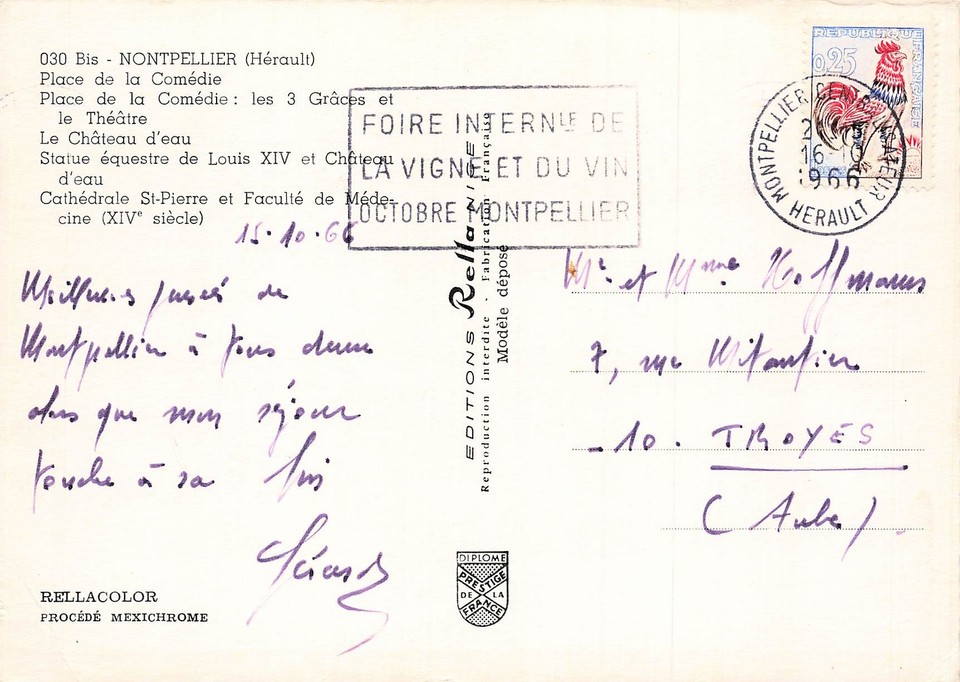 030 Bis - NONTPELLIER (Hérault)
Place de la Comédie
Place de la Comédie : les 3 Grâces et
le Théâtre
Le Château d'eau
Statue équestre de Louis XIV et Château
d'eau
Cathédrale St-Pierre et Faculté de Méde-
cine (XIVe siècle)
15.10.66
Meilleures pensées de
Montpellier à tous deux
alors que mon séjour
touche à sa fin
Gérard
RELLACOLOR
PROCÉDÉ MEXICHROME
FOIRE INTERNLE DE
LA VIGNE ET DU VIN
OCTOBRE MONTPELLIER
EDITIONS Rella NICE
Reproduction interdite - Fabrication Française
Modèle déposé
DIPLOME
PRESTIGE
DE LA
FRANCE
REPUBLIQUE FRANÇAISE
0,25
MONTPELLIER
16
1966
HERAULT
Mr et Mme Hoffmann
7, rue Mitantier
10. TROYES
(Aube).